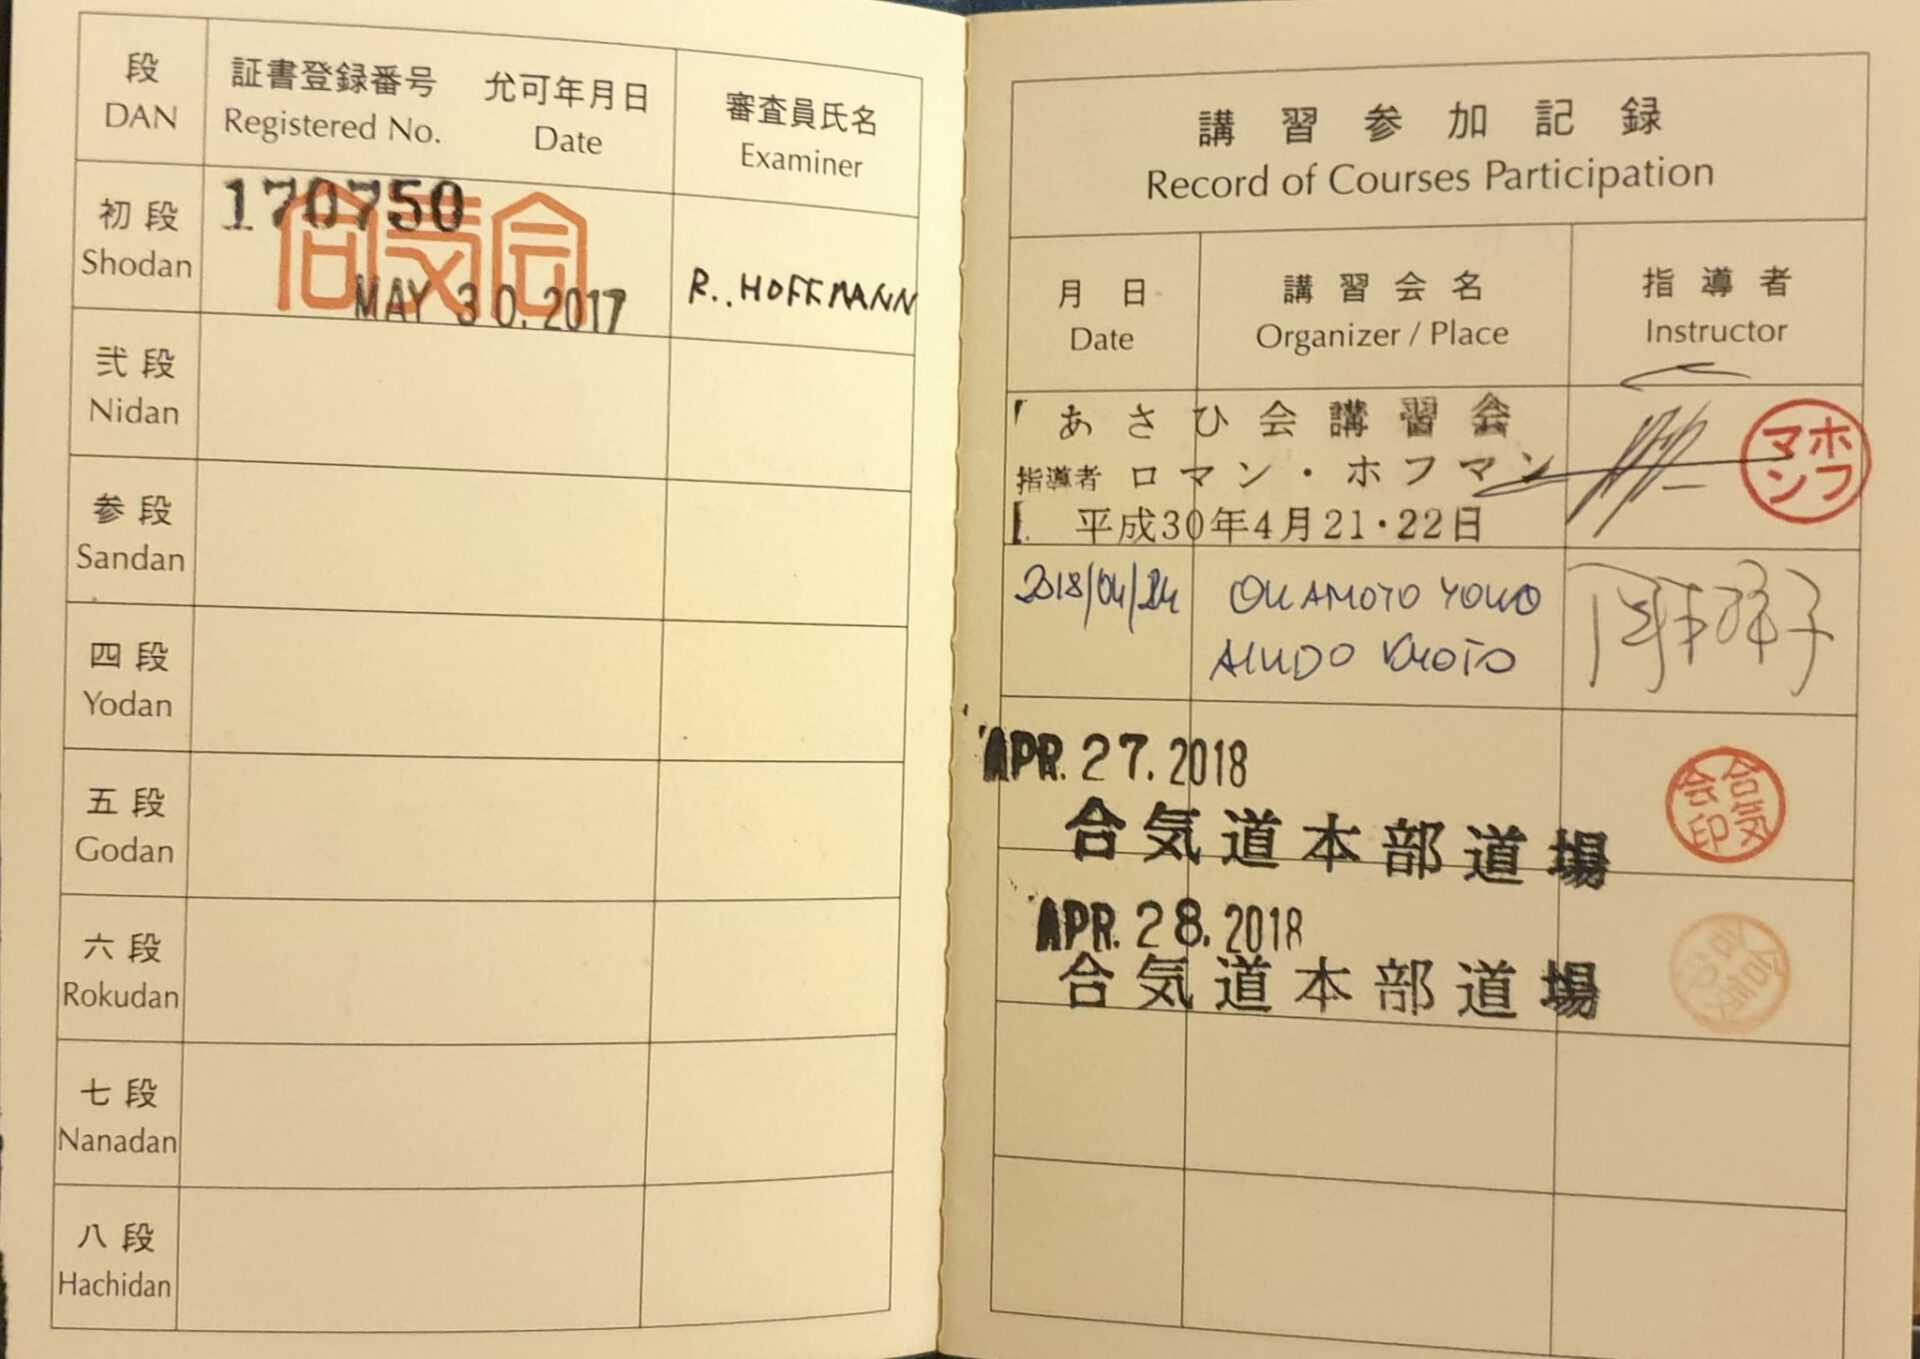 段
DAN
証書登録番号 允可年月日
Registered No. Date
審査員氏名
Examiner
初段
Shodan
170750
合気会
MAY 30.2017
R. HOFFMANN
弐段
Nidan
参段
Sandan
四段
Yodan
五段
Godan
六段
Rokudan
七段
Nanadan
八段
Hachidan
講習参加記録
Record of Courses Participation
月日
Date
講習会名
Organizer / Place
指導者
Instructor
あさひ会講習会
指導者 ロマン・ホフマン
平成30年4月21・22日
ホフマン
2018/04/24
OKAMOTO YOKO
AIKIDO KYOTO
岡本洋子
APR. 27. 2018
合気道本部道場
合気会印
APR. 28. 2018
合気道本部道場